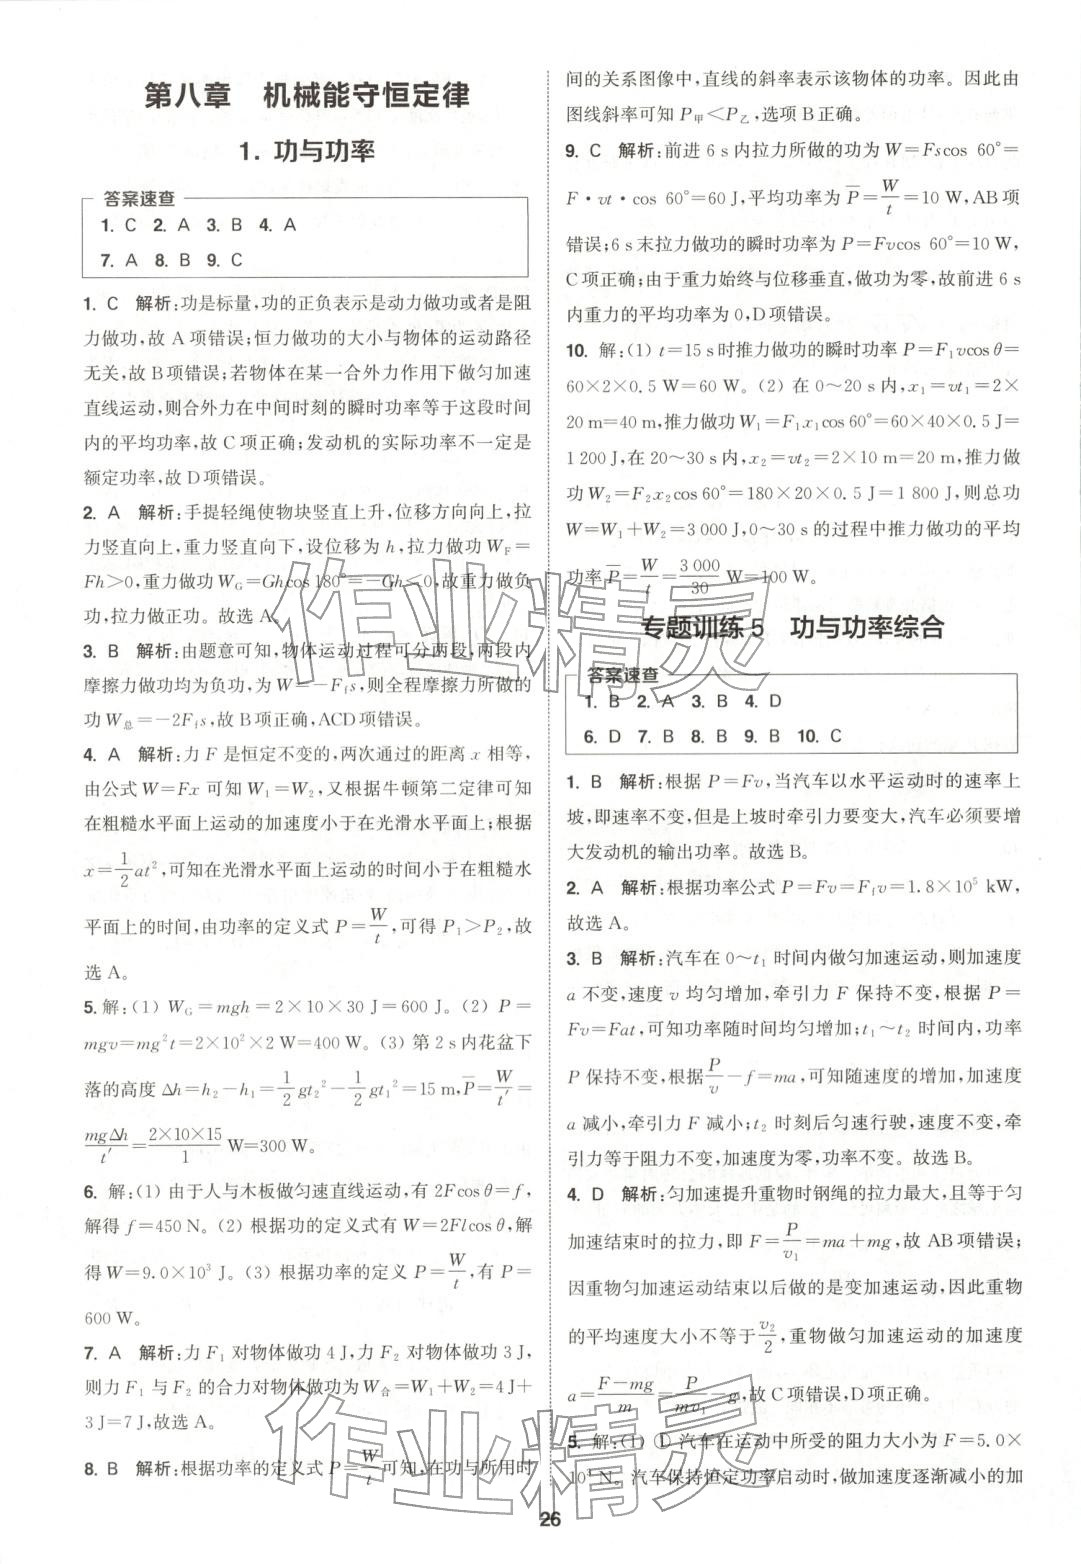 第八章　机械能守恒定律
1. 功与功率
答案速查
1. C 2. A 3. B 4. A
7. A 8. B 9. C
1. C　解析:功是标量,功的正负表示是动力做功或者是阻
力做功,故 A 项错误;恒力做功的大小与物体的运动路径
无关,故 B 项错误;若物体在某一合外力作用下做匀加速
直线运动,则合外力在中间时刻的瞬时功率等于这段时间
内的平均功率,故 C 项正确;发动机的实际功率不一定是
额定功率,故 D 项错误。
2. A　解析:手提轻绳使物块竖直上升,位移方向向上,拉
力竖直向上,重力竖直向下,设位移为 h,拉力做功 W_F=
Fh>0,重力做功 W_G=Ghcos 180°=-Gh<0,故重力做负
功,拉力做正功。故选 A。
3. B　解析:由题意可知,物体运动过程可分两段,两段内
摩擦力做功均为负功,为 W=-F_f s,则全程摩擦力所做的
功 W_总=-2F_f s,故 B 项正确,ACD 项错误。
4. A　解析:力 F 是恒定不变的,两次通过的距离 x 相等,
由公式 W=Fx 可知 W₁=W₂,又根据牛顿第二定律可知
在粗糙水平面上运动的加速度小于在光滑水平面上;根据
x=1/2 at²,可知在光滑水平面上运动的时间小于在粗糙水
平面上的时间,由功率的定义式 P=W/t,可得 P₁>P₂,故
选 A。
5. 解:(1) W_G=mgh=2×10×30 J=600 J。(2) P=
mgv=mg²t=2×10²×2 W=400 W。(3) 第 2 s 内花盆下
落的高度 Δh=h₂-h₁=1/2 gt₂²-1/2 gt₁²=15 m,P̄=W/t′=
mgΔh/t′=2×10×15/1 W=300 W。
6. 解:(1) 由于人与木板做匀速直线运动,有 2Fcos θ=f,
解得 f=450 N。(2) 根据功的定义式有 W=2Flcos θ,解
得 W=9.0×10³ J。(3) 根据功率的定义 P=W/t,有 P=
600 W。
7. A　解析:力 F₁ 对物体做功 4 J,力 F₂ 对物体做功 3 J,
则力 F₁ 与 F₂ 的合力对物体做功为 W_合=W₁+W₂=4 J+
3 J=7 J,故选 A。
8. B　解析:根据功率的定义式 P=W/t 可知,在功与所用时
间的关系图像中,直线的斜率表示该物体的功率。因此由
图线斜率可知 P_甲<P_乙,选项 B 正确。
9. C　解析:前进 6 s 内拉力所做的功为 W=Fscos 60°=
F·vt·cos 60°=60 J,平均功率为 P̄=W/t=10 W,AB 项
错误;6 s 末拉力做功的瞬时功率为 P=Fvcos 60°=10 W,
C 项正确;由于重力始终与位移垂直,做功为零,故前进 6 s
内重力的平均功率为 0,D 项错误。
10. 解:(1) t=15 s 时推力做功的瞬时功率 P=F₁vcos θ=
60×2×0.5 W=60 W。(2) 在 0～20 s 内,x₁=vt₁=2×
20 m=40 m,推力做功 W₁=F₁x₁cos 60°=60×40×0.5 J=
1 200 J,在 20～30 s 内,x₂=vt₂=2×10 m=20 m,推力做
功 W₂=F₂x₂cos 60°=180×20×0.5 J=1 800 J,则总功
W=W₁+W₂=3 000 J,0～30 s 的过程中推力做功的平均
功率 P̄=W/t=3 000/30 W=100 W。
专题训练 5　功与功率综合
答案速查
1. B 2. A 3. B 4. D
6. D 7. B 8. B 9. B 10. C
1. B　解析:根据 P=Fv,当汽车以水平运动时的速率上
坡,即速率不变,但是上坡时牵引力要变大,汽车必须要增
大发动机的输出功率。故选 B。
2. A　解析:根据功率公式 P=Fv=F₁v=1.8×10⁵ kW,
故选 A。
3. B　解析:汽车在 0～t₁ 时间内做匀加速运动,则加速度
a 不变,速度 v 均匀增加,牵引力 F 保持不变,根据 P=
Fv=Fat,可知功率随时间均匀增加;t₁～t₂ 时间内,功率
P 保持不变,根据 P/v-f=ma,可知随速度的增加,加速度
a 减小,牵引力 F 减小;t₂ 时刻后匀速行驶,速度不变,牵
引力等于阻力不变,加速度为零,功率不变。故选 B。
4. D　解析:匀加速提升重物时钢绳的拉力最大,且等于匀
加速结束时的拉力,即 F=P/v₁=ma+mg,故 AB 项错误;
因重物匀加速运动结束以后做的是变加速运动,因此重物
的平均速度大小不等于 v₂/2,重物做匀加速运动的加速度
a=(F-mg)/m=P/(mv₁)-g,故 C 项错误,D 项正确。
5. 解:(1) ① 汽车在运动中所受的阻力大小为 F=5.0×
10³ N。汽车保持恒定功率启动时,做加速度逐渐减小的加
26
作业精灵
作业精灵